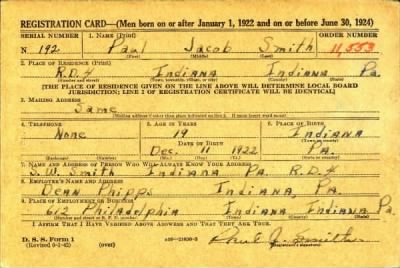 REGISTRATION CARD—(Men born on or after January 1, 1922 and on or before June 30, 1924)
SERIAL NUMBER 1. NAME (Print) ORDER NUMBER
N 192 Paul Jacob Smith 11,553
(First) (Middle) (Last)
2. PLACE OF RESIDENCE (Print)
R.D.4 Indiana Indiana Pa.
(Number and street) (Town, township, village, or city) (County) (State)
[THE PLACE OF RESIDENCE GIVEN ON THE LINE ABOVE WILL DETERMINE LOCAL BOARD
JURISDICTION; LINE 2 OF REGISTRATION CERTIFICATE WILL BE IDENTICAL]
3. MAILING ADDRESS
Same
[Mailing address if other than place indicated on line 2. If same insert word same]
4. TELEPHONE 5. AGE IN YEARS 6. PLACE OF BIRTH
None 19 Indiana
DATE OF BIRTH (Town or county)
Dec. 11 1922 Pa.
(Exchange) (Number) (Mo.) (Day) (Yr.) (State or country)
7. NAME AND ADDRESS OF PERSON WHO WILL ALWAYS KNOW YOUR ADDRESS
S. W. Smith Indiana Pa. R.D.4
8. EMPLOYER'S NAME AND ADDRESS
Dean Phipps Indiana, Pa.
9. PLACE OF EMPLOYMENT OR BUSINESS
612 Philadelphia Indiana Indiana Pa.
(Number and street or R. F. D. number) (Town) (County) (State)
I AFFIRM THAT I HAVE VERIFIED ABOVE ANSWERS AND THAT THEY ARE TRUE.
D. S. S. Form 1
(Revised 6-9-42) (over) 16—21630-2 Paul J. Smith